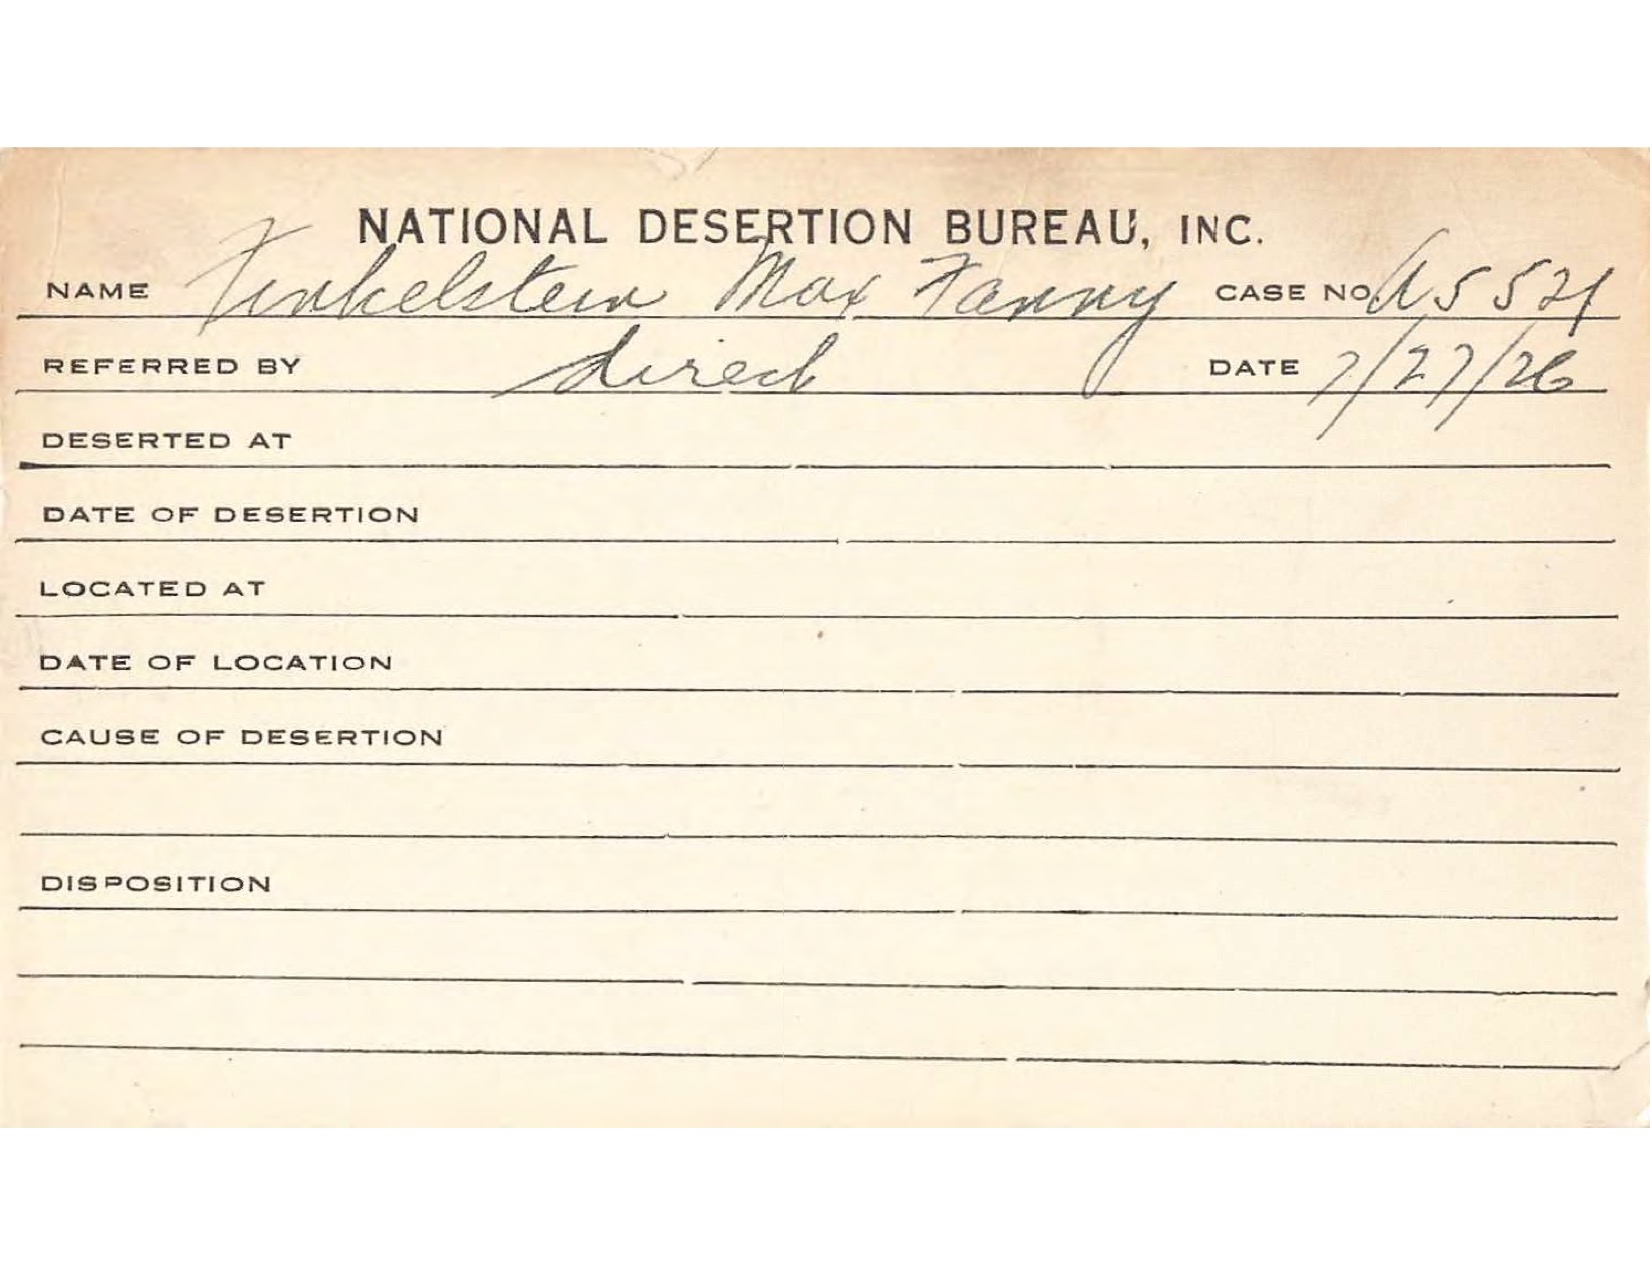 NATIONAL DESERTION BUREAU, INC.
NAME Finkelstein Max Fanny CASE NO. A5521
REFERRED BY direct DATE 7/27/26
DESERTED AT
DATE OF DESERTION
LOCATED AT
DATE OF LOCATION
CAUSE OF DESERTION
DISPOSITION